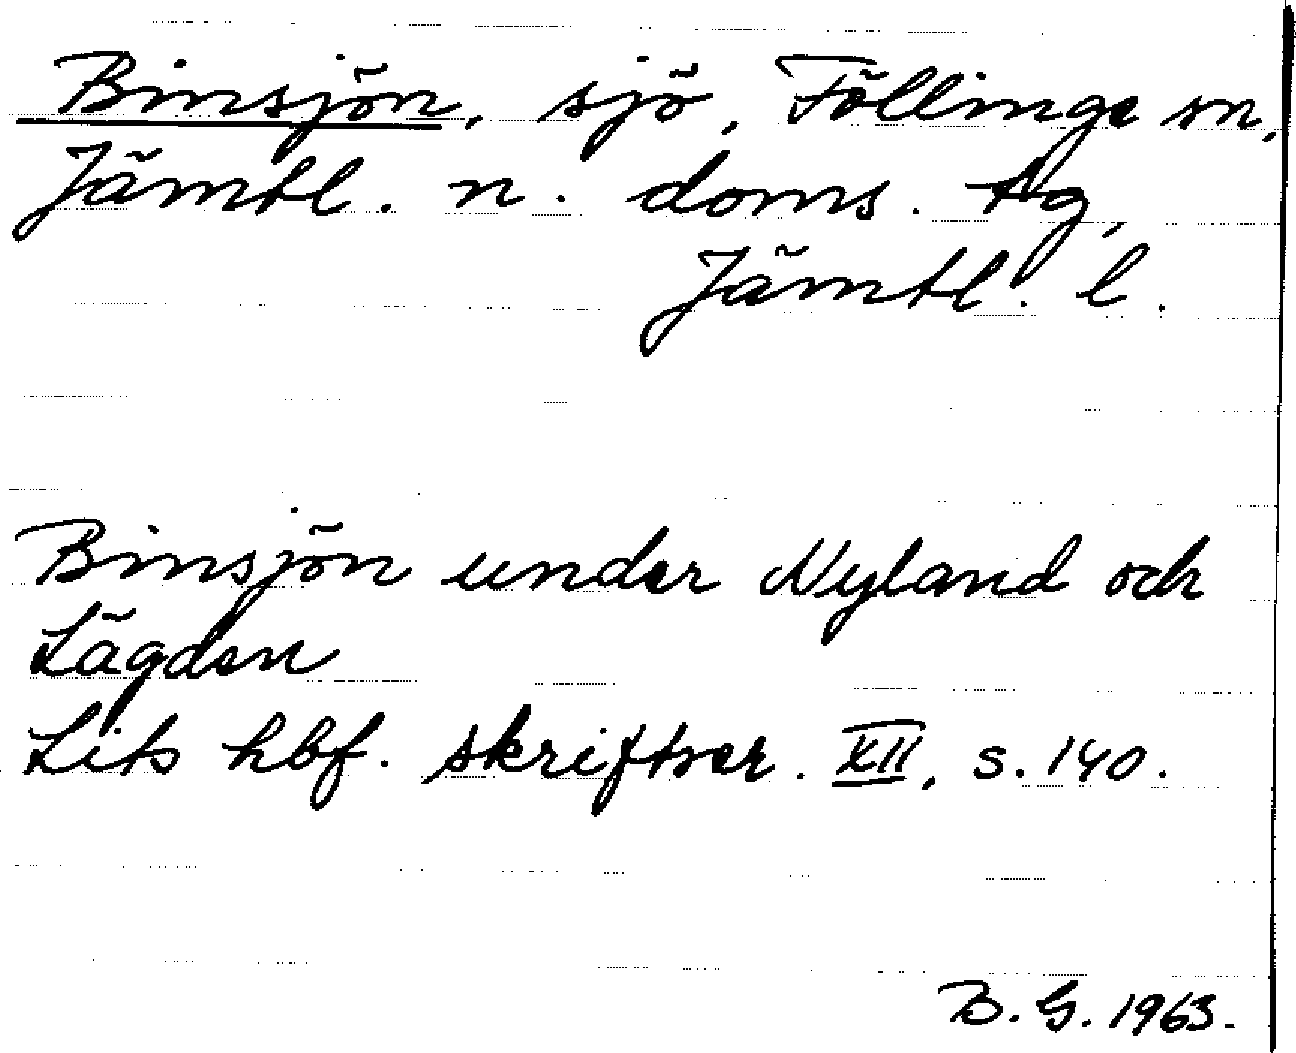 Binsjön, sjö, Föllinge sn,
Jämtl. n. doms. tg,
Jämtl. l.
Binsjön under Nyland och
Lägden
Lits hbf. skriftser. XII, s. 140.
B. G. 1963.